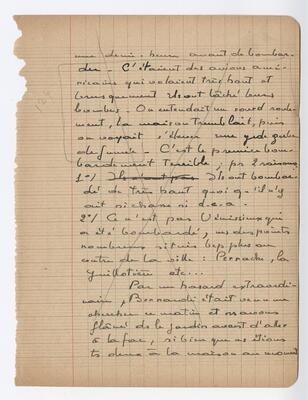 une demi-heure avant de bombar-
der - C'étaient des avions amé-
ricains qui volaient très haut et
brusquement ils ont lâché leurs
bombes. On entendait un sourd roule-
ment, la maison tremblait, puis
on voyait s'élever une
de fumée - C'est le premier bom-
bardement Terrible, pr 2 raisons
1°/ Ils ont bombar-
dé de très haut quoi q. il n'y
ait ni chasse ni d.c.a.
2°/ Ce n'est pas Vénissieux qui
a été bombardé, mais des points
nombreux situés bcp plus au
centre de la ville : Perrache, la
Guillotière etc...
Par un hasard extraordi-
naire, Bernardi était venu me
chercher ce matin et ns avons
flâné ds le jardin avant d'aller
à la fac, si bien que ns étions
ts deux à la maison au moment